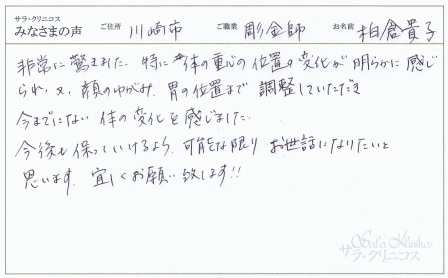 サラ・クリニコス
みなさまの声 ご住所 川崎市 ご職業 彫金師 お名前 柏倉貴子
非常に驚きました。特に 体の重心の位置の変化が明らかに感じ
られ、又、顔のゆがみ、胃の位置まで 調整していただき
今までにない 体の変化を感じました。
今後も保っていけるよう、可能な限り お世話になりたいと
思います。宜しくお願い致します!!
Sala Klinikos
サラ・クリニコス